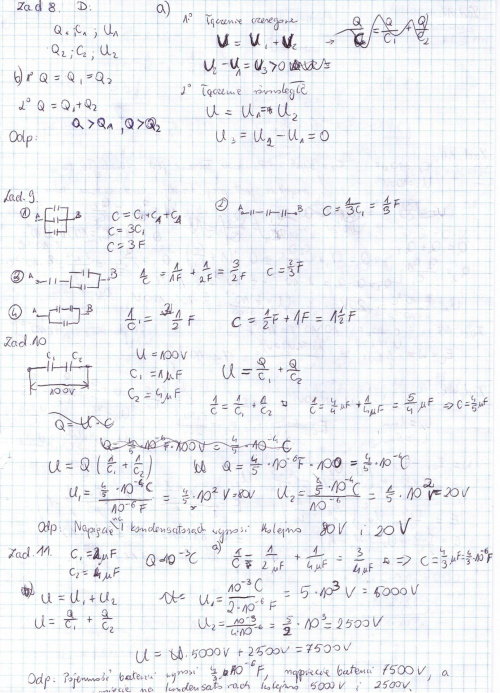 Zad 8. D: a)
Q₁; C₁; U₁
Q₂; C₂; U₂
1° Łączenie szeregowe
U = U₁ + U₂ → Q/C = Q/C₁ + Q/C₂
U₂ - U₁ = U₃ > 0
b) 1° Q = Q₁ = Q₂
2° Q = Q₁ + Q₂
Q > Q₁, Q > Q₂
2° Łączenie równoległe
U = U₁ = U₂
U₃ = U₂ - U₁ = 0
Odp:
Zad. 9.
① A B C = C₁ + C₁ + C₁
C = 3C₁
C = 3F
② A B C = 1/3C₁ = 1/3 F
③ A B 1/C = 1/1F + 1/2F = 3/2F C = 2/3 F
④ A B 1/C₁ = 1/2 F C = 1/2 F + 1F = 1 1/2 F
Zad. 10
C₁ C₂
100V
U = 100V
C₁ = 1µF
C₂ = 4µF
U = Q/C₁ + Q/C₂
1/C = 1/C₁ + 1/C₂ 1/C = 4/4 µF + 1/4µF = 5/4 µF ⇒ C = 4/5 µF
Q = U · C
Q = 4/5 · 10⁻⁶ F · 100V = 4/5 · 10⁻⁴ C
U = Q (1/C₁ + 1/C₂) Q = 4/5 · 10⁻⁶ F · 100 = 4/5 · 10⁻⁴ C
U₁ = 4/5 · 10⁻⁴ C / 10⁻⁶ F = 4/5 · 10² V = 80V U₂ = 4/5 · 10⁻⁴ C / 10⁻⁶ = 1/5 · 10² V = 20V
Odp: Napięcie na kondensatorach wynosi kolejno 80V i 20V
Zad. 11. C₁ = 2µF
C₂ = 4µF
Q = 10⁻³ C a) 1/C = 1/2µF + 1/4µF = 3/4µF ⇒ C = 4/3 µF = 4/3 · 10⁻⁶ F
b) U = U₁ + U₂
U = Q/C₁ + Q/C₂
U₁ = 10⁻³ C / 2·10⁻⁶ F = 5 · 10³ V = 5000V
U₂ = 10⁻³ / 4·10⁻⁶ = 5/2 · 10³ = 2500V
U = 5000V + 2500V = 7500V
Odp: Pojemność baterii wynosi 4/3 · 10⁻⁶ F, napięcie baterii 7500V, a
napięcie na kondensatorach kolejno 5000V i 2500V.